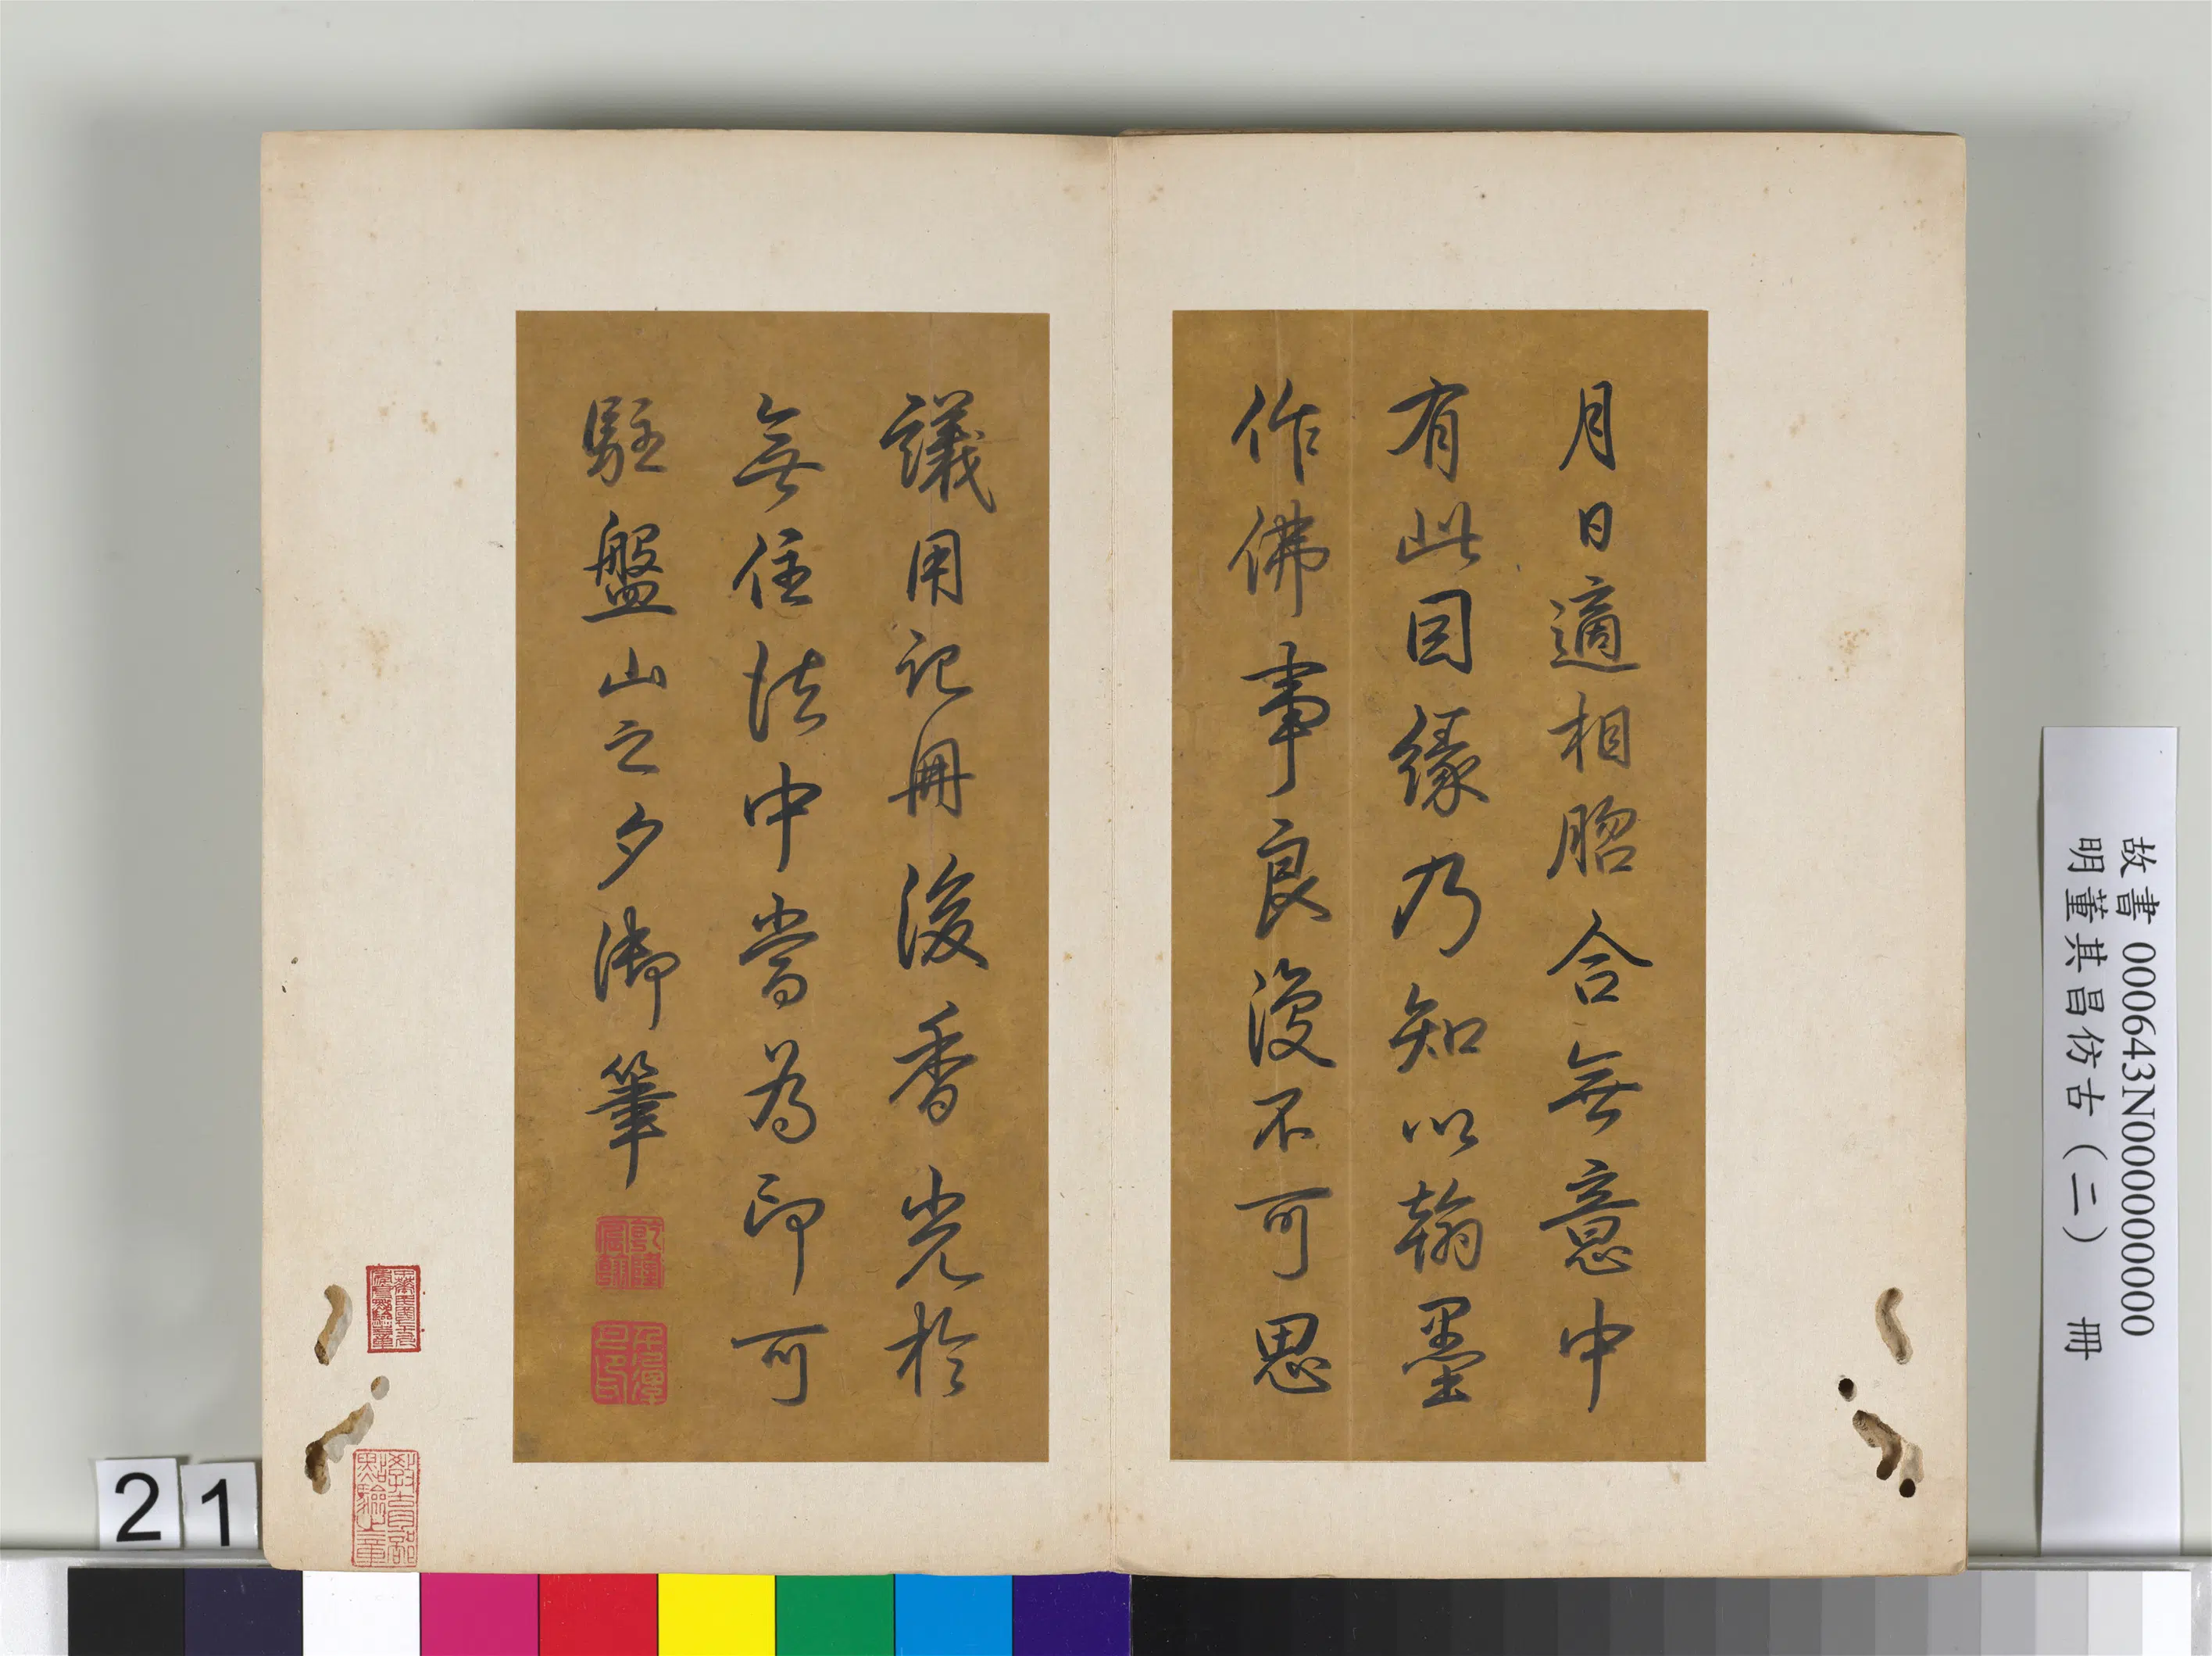 月日適相脗合無意中
有此因緣乃知以翰墨
作佛事良復不可思
議用記冊後香光於
無住法中當為印可
駐盤山之夕御筆
乾隆
宸翰
故書 000643N000000000
明董其昌仿古(二) 冊
21